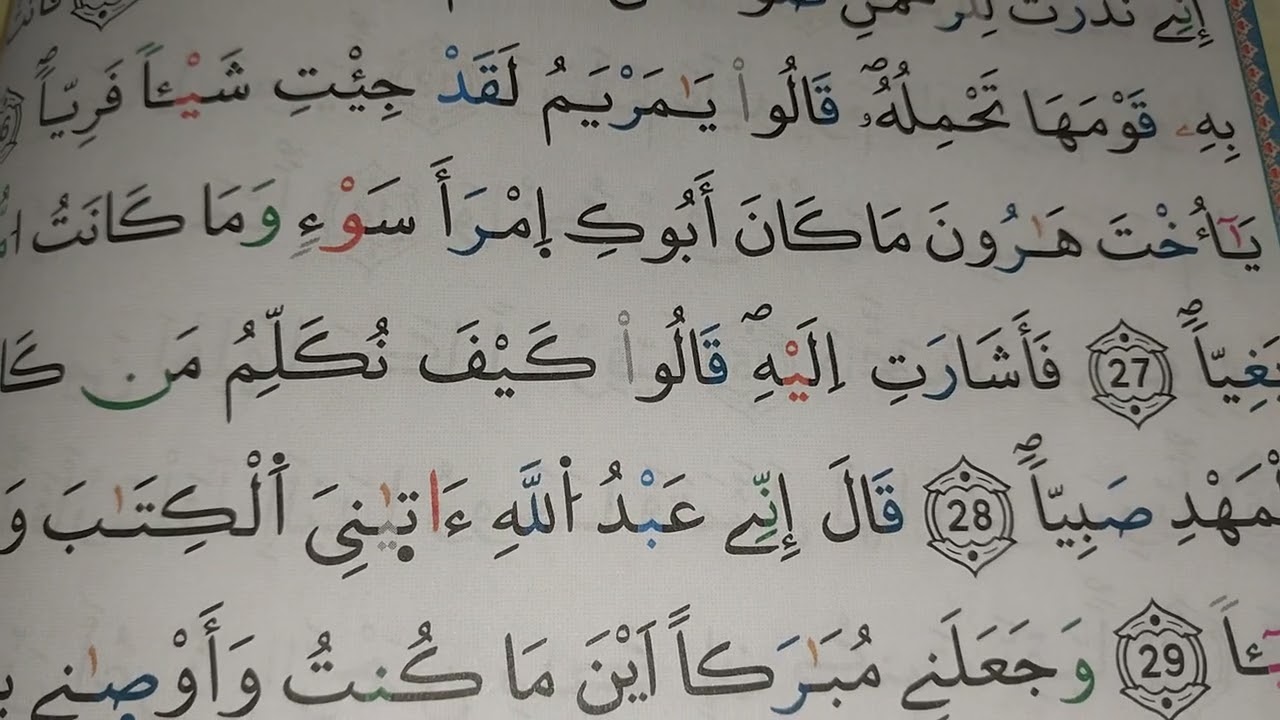 إِنِّے نَذَرْتُ لِلرَّحْمَٰنِ
بِهِۦ قَوْمَهَا تَحْمِلُهُۥۖ قَالُواْ يَٰمَرْيَمُ لَقَدْ جِئْتِ شَيْـٔاً فَرِيّاًۖ
يَٰٓأُخْتَ هَٰرُونَ مَا كَانَ أَبُوكِ اِمْرَأَ سَوْءٍ وَمَا كَانَتُ
بَغِيّاًۖ 27 فَأَشَارَتِ اِلَيْهِۖ قَالُواْ كَيْفَ نُكَلِّمُ مَن كَا
لْمَهْدِ صَبِيّاًۖ 28 قَالَ إِنِّے عَبْدُ اُ۬للَّهِ ءَاتَىٰنِيَ اَ۬لْكِتَٰبَ وَ
ـٔاً 29 وَجَعَلَنِے مُبَٰرَكاً اَيْنَ مَا كُنتُ وَأَوْصَٰنِے بِ